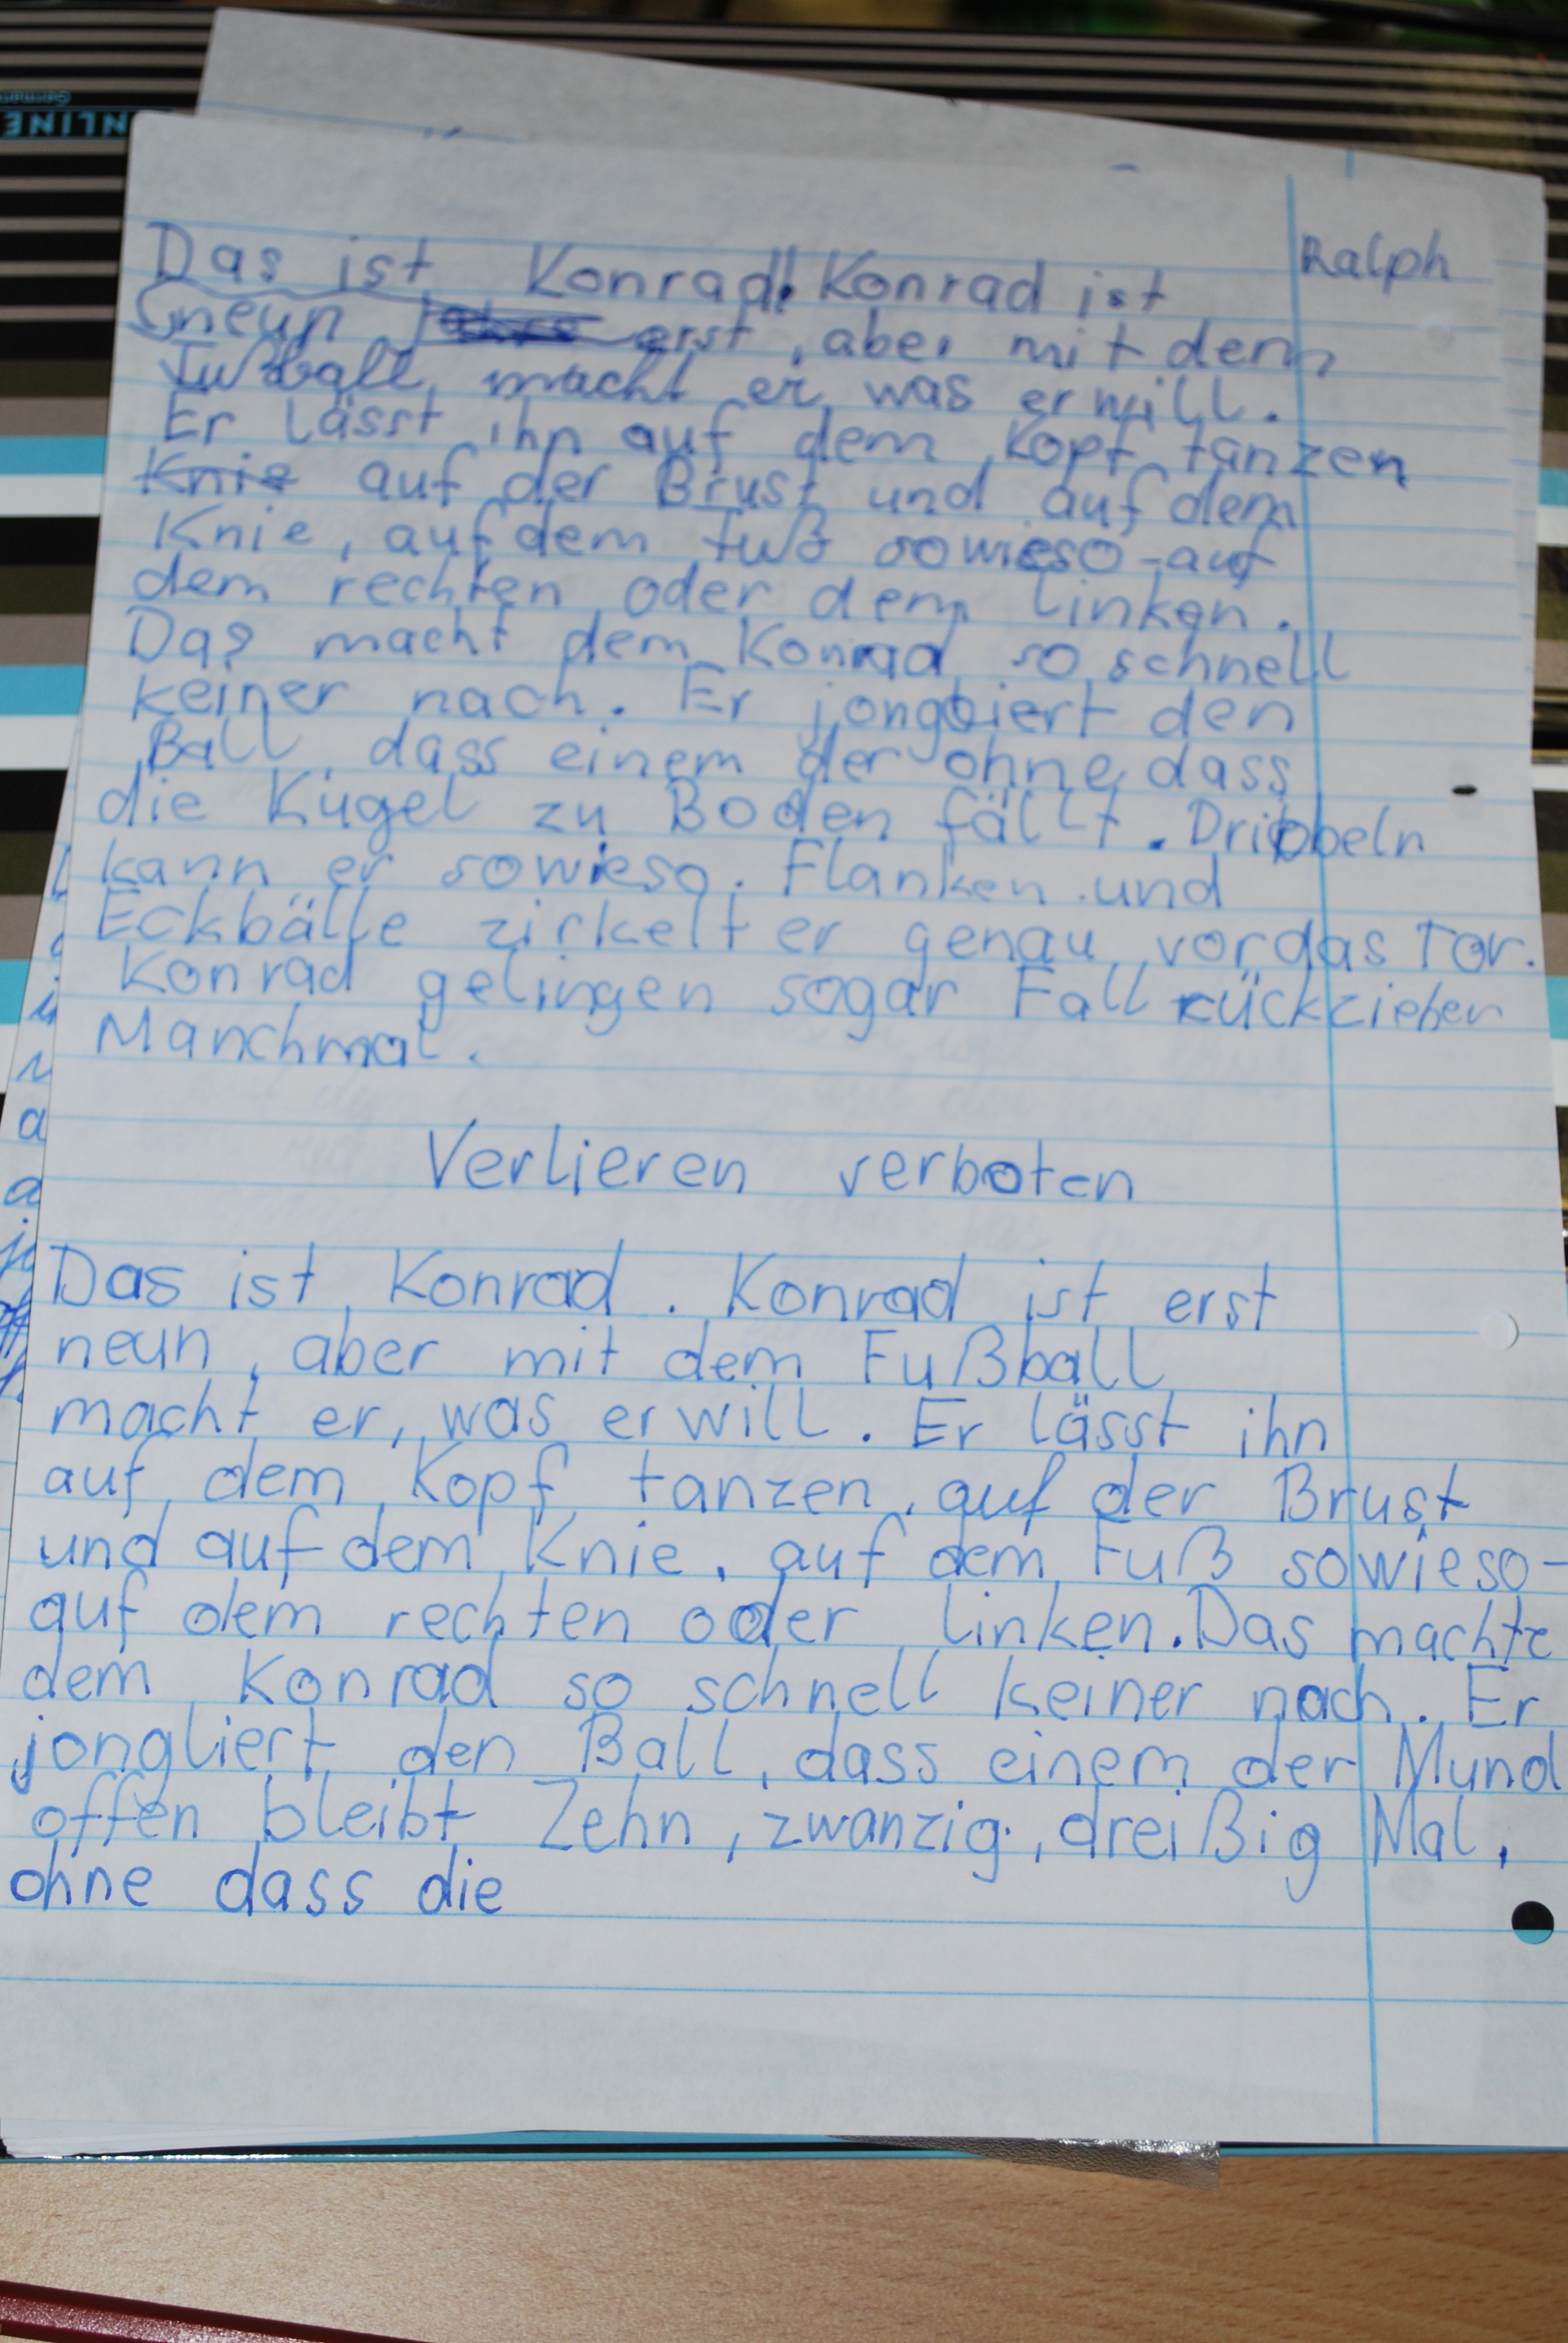 NLINE
Ralph
Das ist Konrad! Konrad ist
neun erst, aber mit dem
Fußball macht er was er will.
Er lässt ihn auf dem Kopf tanzen
Knie auf der Brust und auf dem
Knie, auf dem Fuß sowieso - auf
dem rechten oder dem linken.
Das macht dem Konrad so schnell
keiner nach. Er jongliert den
Ball, dass einem der ohne dass
die Kugel zu Boden fällt. Dribbeln
kann er sowieso. Flanken und
Eckbälle zirkelt er genau vor das Tor.
Konrad gelingen sogar Fallrückzieher
Manchmal.
Verlieren verboten
Das ist Konrad. Konrad ist erst
neun, aber mit dem Fußball
macht er, was er will. Er lässt ihn
auf dem Kopf tanzen, auf der Brust
und auf dem Knie, auf dem Fuß sowieso -
auf dem rechten oder linken. Das machte
dem Konrad so schnell keiner nach. Er
jongliert den Ball, dass einem der Mund
offen bleibt Zehn, zwanzig, dreißig Mal,
ohne dass die